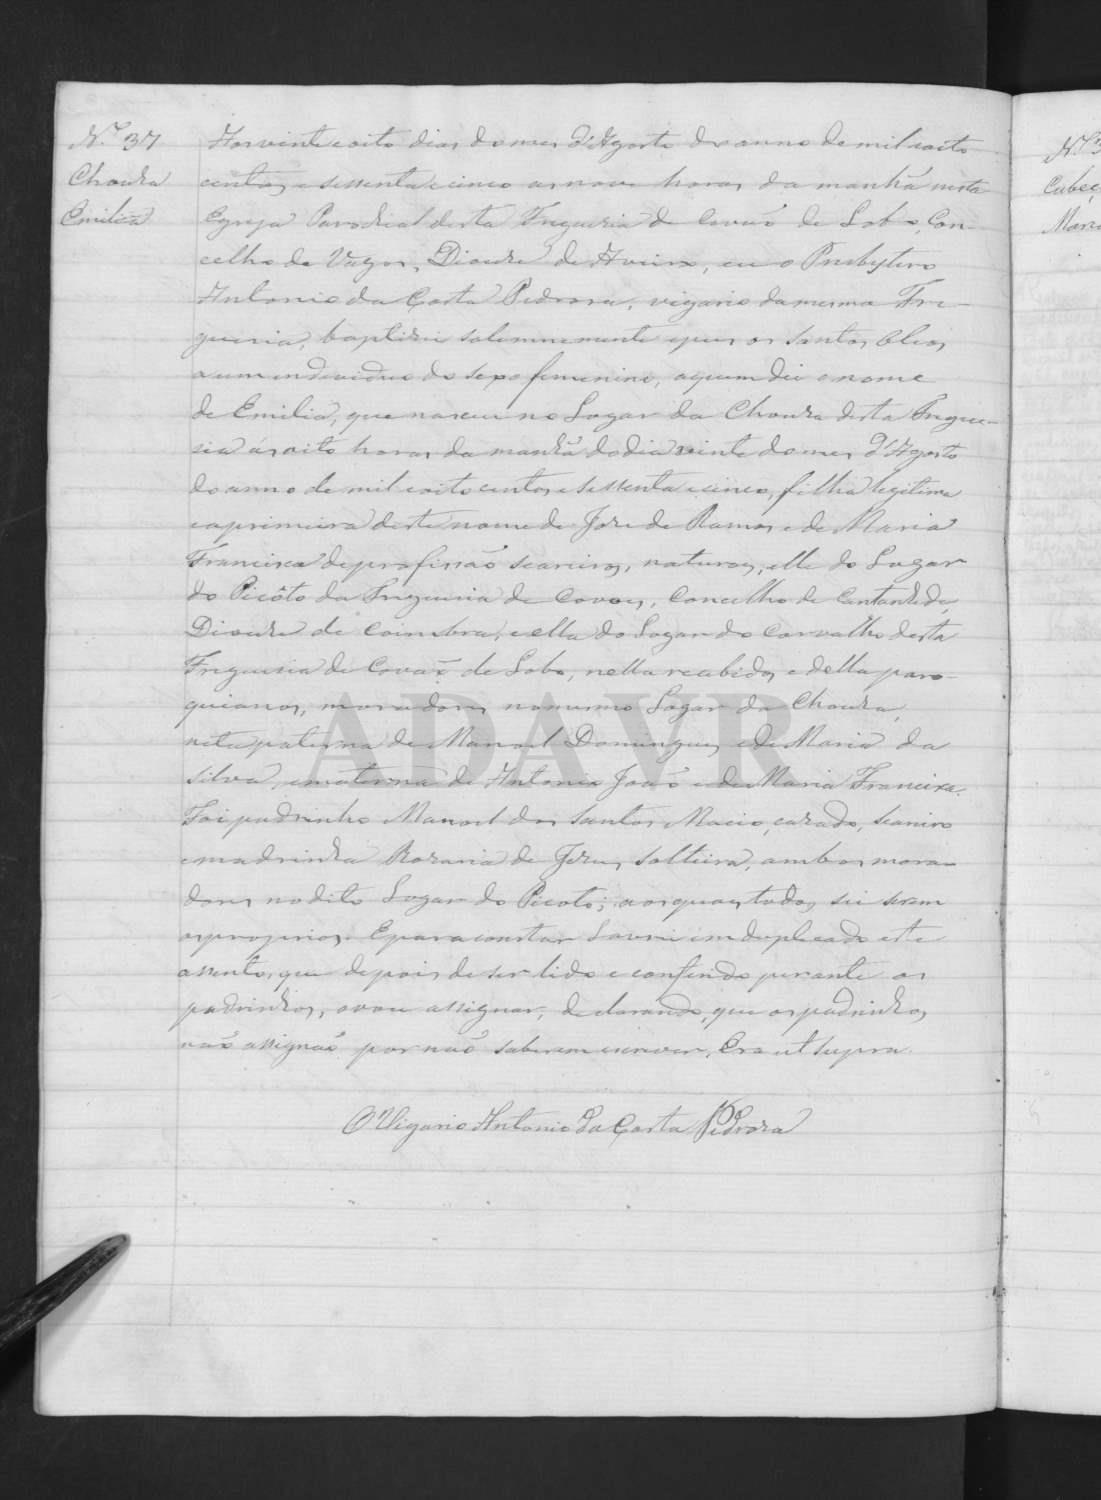 N.º 37
Chousa
Emilia
Aos vinte e oito dias do mes d'Agosto do anno de mil e oito
centos e sessenta e cinco as nove horas da manhã nesta
Egreja Parochial desta Freguesia de Covão de Lobo, Con-
celho de Vagos, Diocese de Aveiro, eu o Presbytero
Antonio da Costa Pedrosa, vigario da mesma Fre-
guesia, baptizei solemnemente e pus os santos Oleos
a um individuo do sexo femenino, a quem dei o nome
de Emilia, que nasceu no Logar da Chousa desta Fregue-
sia ás oito horas da manhã do dia vinte do mes d'Agosto
do anno de mil e oito centos e sessenta e cinco, filha legitima
e a primeira deste nome de José de Ramos e de Maria
Francisca de profissão seareiros, naturaes, elle do Lugar
do Picôto da Freguesia de Covoes, Concelho de Cantanhede,
Diocese de Coimbra, e ella do Logar do Carvalho desta
Freguesia de Covaõ de Lobo, nella recebidos e della paro-
quianos, moradores no mesmo Logar da Chousa,
neta paterna de Manoel Domingues e de Maria da
Silva, e materna de Antonio João e de Maria Francisca.
Foi padrinho Manoel dos Santos Macio, casado, seareiro
e madrinha Rosaria de Jesus, solteira, ambos mora-
dores no dito Logar do Picoto; aos quaes todos sei serem
os proprios. E para constar Lavrei em duplicado este
assento, que depois de ser lido e conferido perante os
padrinhos, o vou assignar, declarando, que os padrinhos
não assignão por não saberem escrever. Era ut supra.
O Vigario Antonio da Costa Pedrosa
N.º 3
Cabeç
Maria
ADAVR